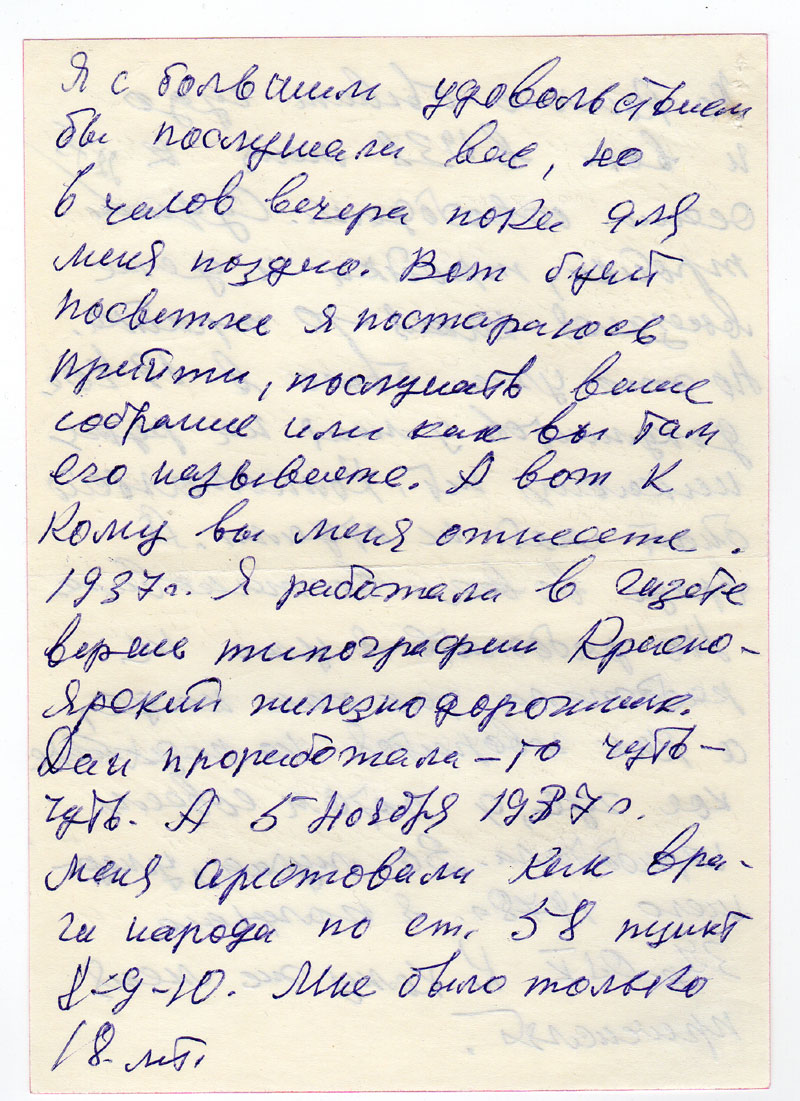 Я с большим удовольствием
бы послушала вас, но
6 часов вечера пока для
меня поздно. Вот будет
посветлее я постараюсь
прийти, послушать ваше
собрание или как вы там
его называете. А вот к
кому вы меня отнесете.
1937г. Я работала в газете
типографии Красно-
ярский железнодорожник.
Да и проработала-то чуть-
чуть. А 5 ноября 1937г.
меня арестовали как вра-
га народа по ст. 58 пункт
8-9-10. Мне было только
18 лет.